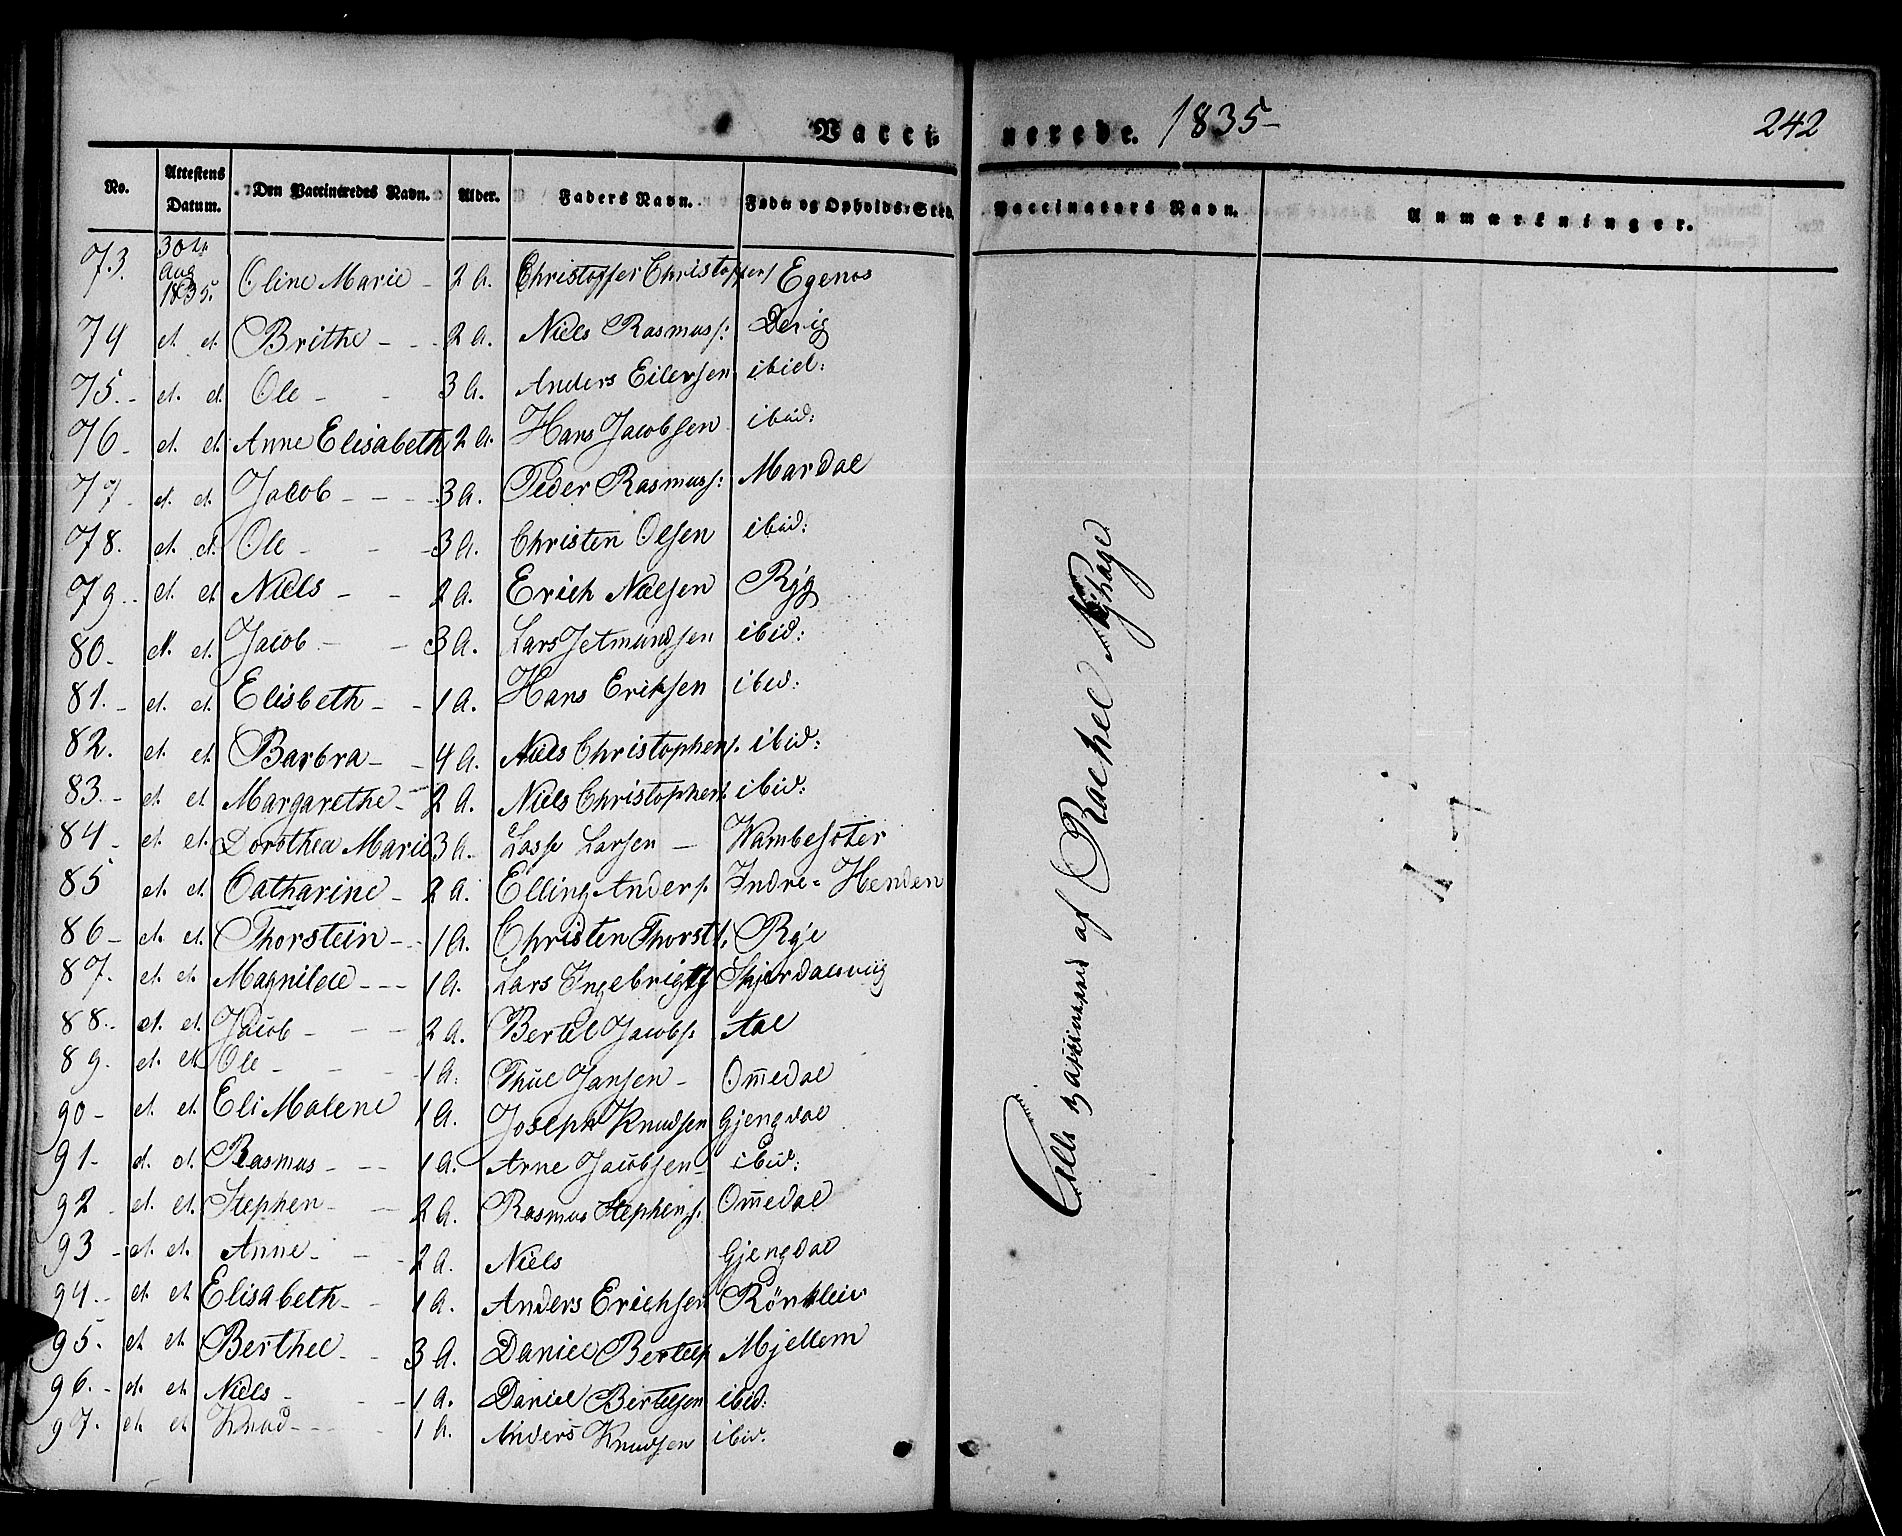 Vacci nerede. 1835- 242
No. Attestens Datum. Den Vaccineredes Navn. Alder. Faders Navn. Føde og Opholds-Sted. Vaccinateurs Navn. Anmærkninger.
73. 30te Aug 1835. Oline Marie - 2 A. Christoffer Christoffers Egenes
74 d. d. Brithe - - 2 A. Niels Rasmuss: Devig
75. - d. d. Ole - - 3 A. Anders Eilersen ibid:
76 - d. d. Anne Elisabeth 2 A. Hans Jacobsen ibid:
77 - d. d. Jacob - - - - 3 A. Peder Rasmuss: Mardal
78. d. d. Ole - - - 3 A. Christen Olsen ibid:
79. - d. d. Niels - - 2 A. Erich Nielsen Ryg
80. d. d. Jacob - - 3 A. Lars Jetmundsen ibid:
81. - d. d. Elisbeth - - 1 A. Hans Eriksen ibid:
82. d. d. Barbra - - 4 A. Niels Christophers. ibid:
83. - d. d. Margarethe - 2 A. Niels Christophers. ibid:
84 - d. d. Dorothea Marie 3 A. Lasse Larsen - Wambeseter
85 d. d. Catharine - 2 A. Elling Anders. Indre- Henden
86 - d. d. Thorstein - - 1 A. Christen Thorst: Ryg
87. d. d. Magnilde - - - 1 A. Lars Ingebrigts Skjerdalsviig
88. - d. d. Jacob - - - 2 A. Bertel Jacobs. Aae
89. d. d. Ole - - - - 1 A. Thue Jansen - Om̄edal
90 - d. d. Eli Malene 1 A. Joseph Knudsen Gjengdal
91 - d. d. Rasmus - - - 1 A. Arne Jacobsen - ibid:
92 d. d. Stephen - - 2 A. Rasmus Stephens. Om̄edal
93 - d. d. Anne - - - 2 A. Niels Gjengdal
94. - d. d. Elisabeth - - 1 A. Anders Erichsen Rönkleiv
95. d. d. Berthel - - 3 A. Daniel Bertels Mjellem
96. - d. d. Niels - - - 1 A. Daniel Bertelsen ibid:
97. d. d. Knud - - - - 1 A. Anders Knudsen ibid.
Alle vaccinered af Rachel Myhage